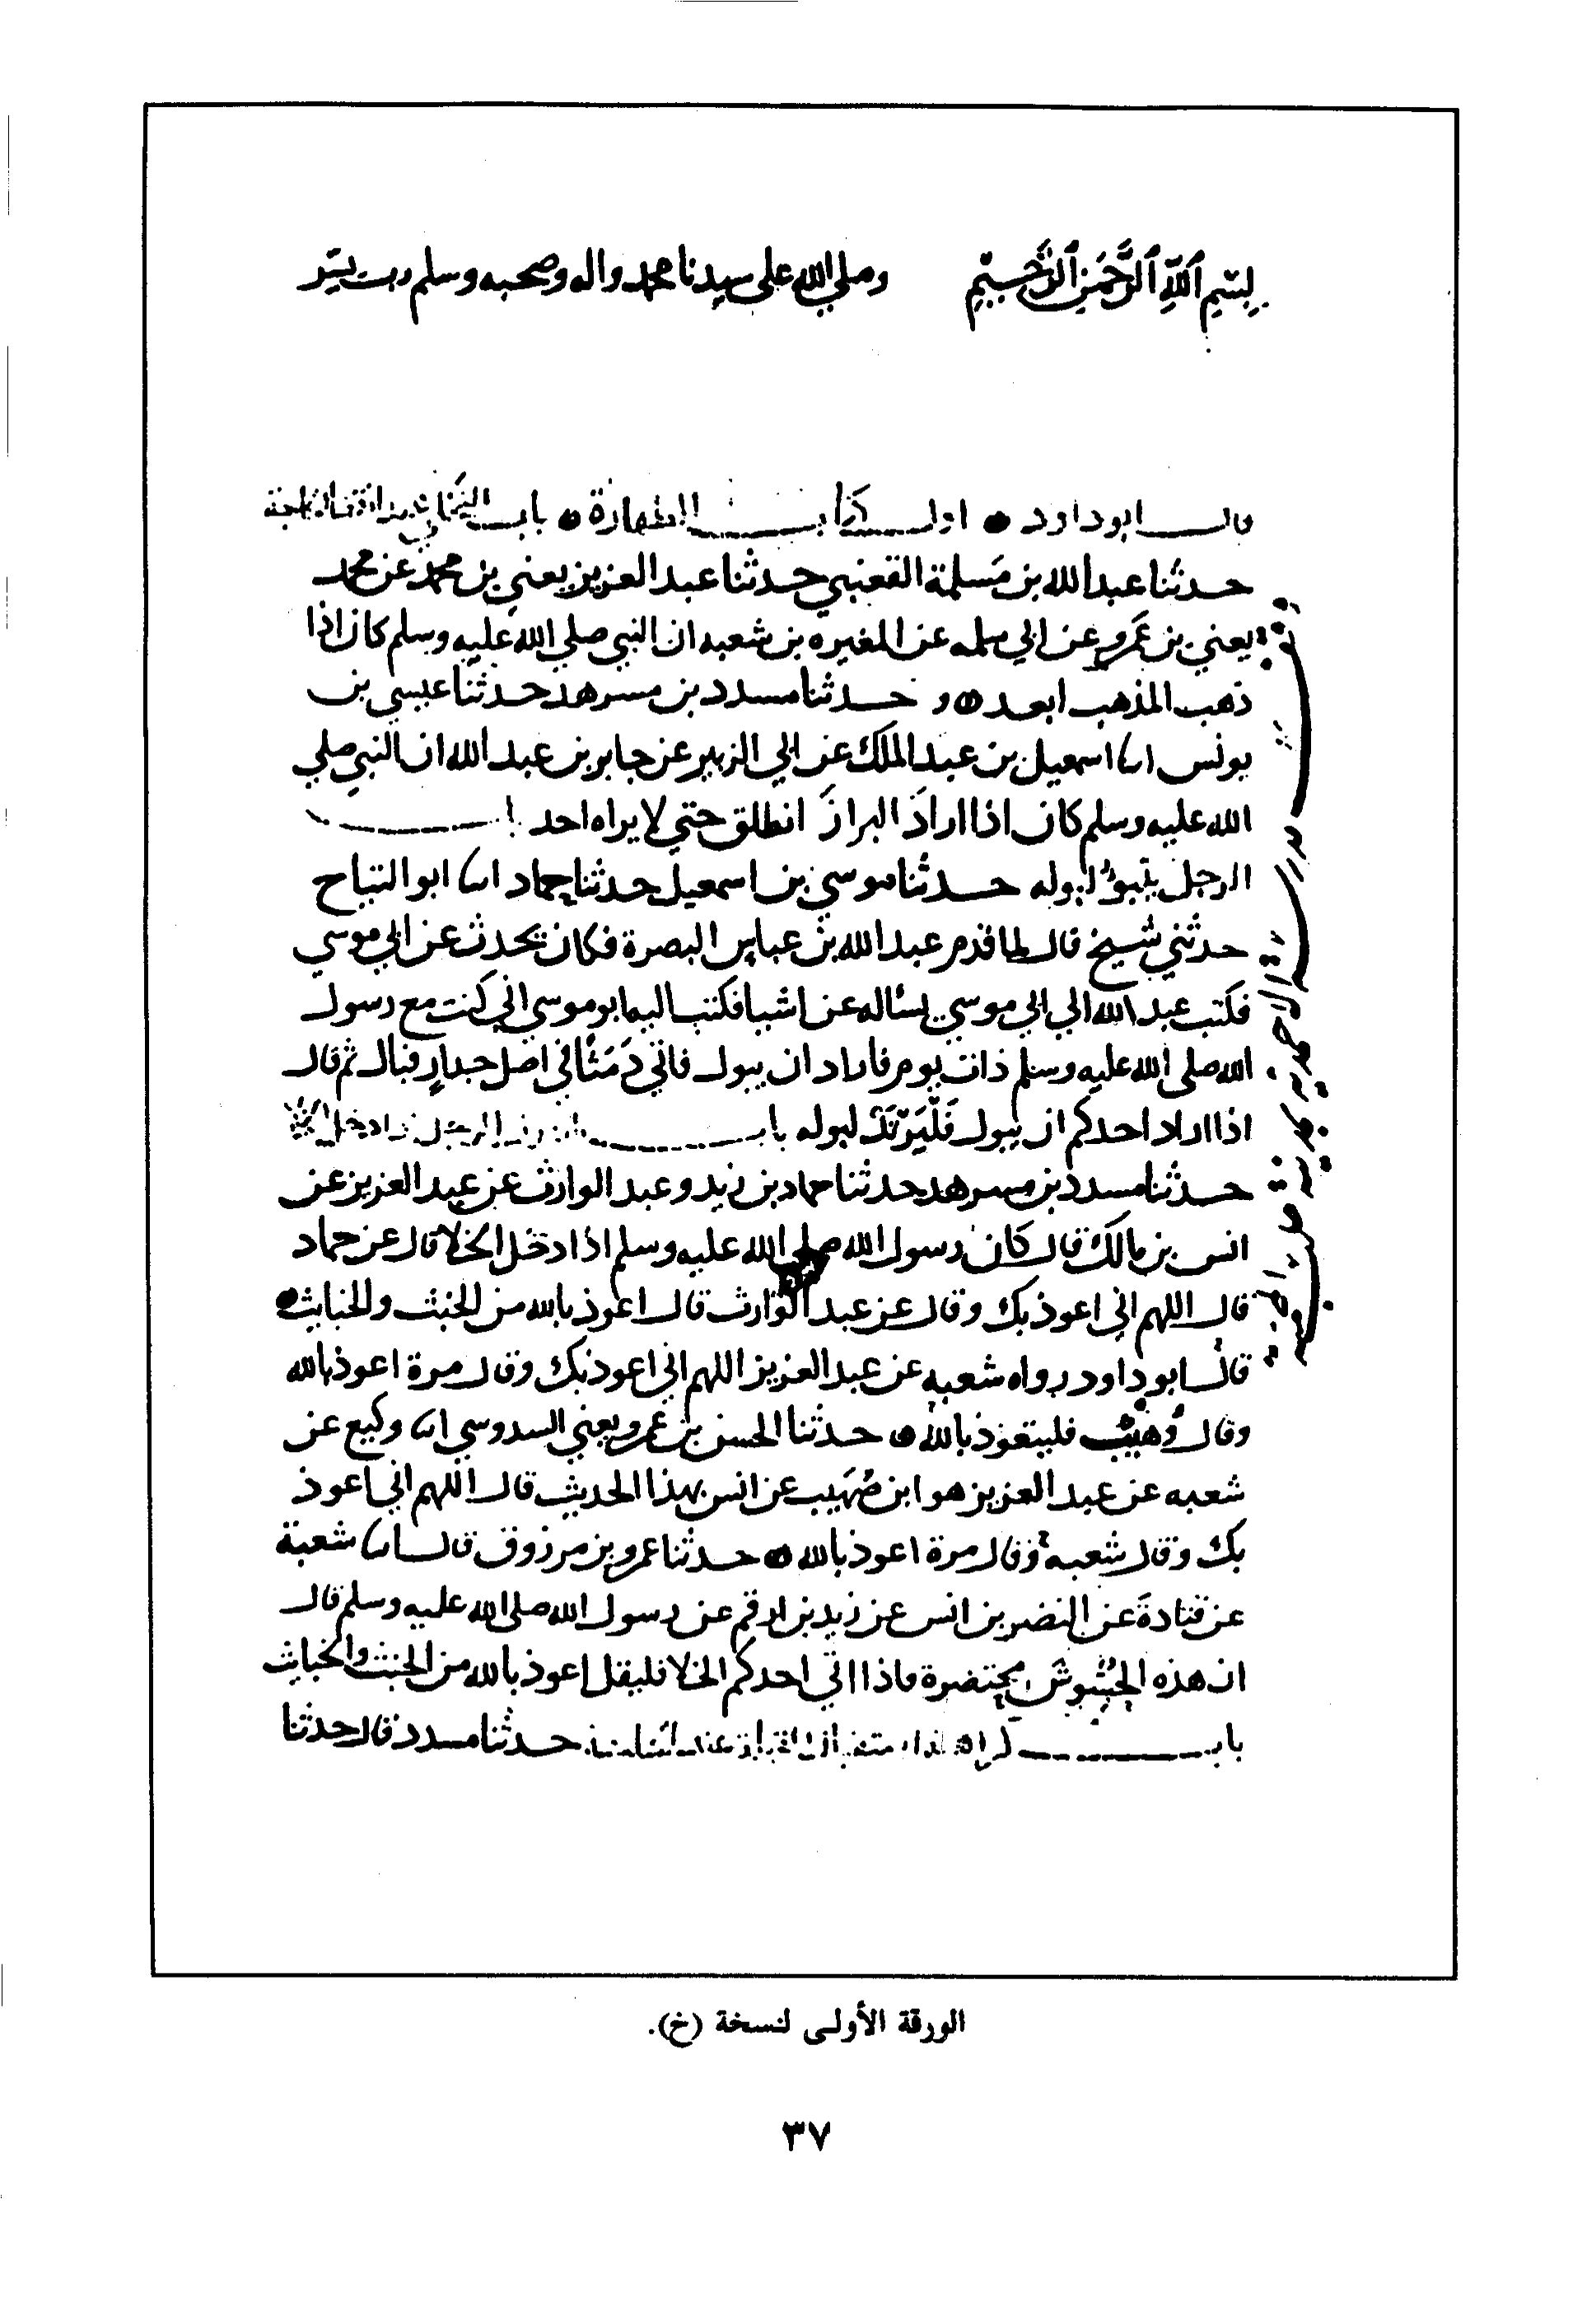 بِسْمِ ٱللَّهِ ٱلرَّحْمَٰنِ ٱلرَّحِيمِ وصلي الله على سيدنا محمد واله وصحبه وسلم رب يسّر
قال ابو داود اول كتاب الطهارة باب
حدثنا عبد الله بن مَسلمة القعنبي حدثنا عبد العزيز يعني بن محمد عن محمد
يعني بن عَمرو عن ابي سلمه عن المغيره بن شعبه ان النبي صلي الله عليه وسلم كان اذا
ذهب المذهب ابعد و حدثنا مسدد بن مسرهد حدثنا عيسي بن
يونس انا اسمعيل بن عبد الملك عن ابي الزبير عن جابر بن عبد الله ان النبي صلي
الله عليه وسلم كان اذا ارادَ البرازَ انطلق حتي لا يراه احد
الرجل يتبوّا لبوله حدثنا موسي بن اسمعيل حدثنا حماد انا ابو التياح
حدثني شيخ قال لما قدم عبد الله بن عباس البصرة فكان يحدث عن ابي موسي
فكتب عبد الله الي ابي موسي يسئاله عن اشيا فكتب اليه ابو موسي اني كنت مع رسول
الله صلى الله عليه وسلم ذات يوم فاراد ان يبول فاتي دَمَثًا في اصل جدارٍ فبال ثم قال
اذا اراد احدكم ان يبول فَلْيَرْتَدْ لبوله باب الرجل اذا دخل
حدثنا مسدد بن مسرهد حدثنا حماد بن زيد وعبد الوارث عن عبد العزيز عن
انس بن مالك قال كان رسول الله صلي الله عليه وسلم اذا ادخل الخلا قال عن حماد
قال اللهم اني اعوذ بك وقال عن عبد الوارث قال اعوذ بالله من الخبث والخبايث
قال ابو داود رواه شعبه عن عبد العزيز اللهم اني اعوذ بك وقال مرة اعوذ بالله
وقال وُهيب فليتعوذ بالله حدثنا الحسن بن عمرو يعني السدوسي انا وكيع عن
شعبه عن عبد العزيز هو ابن صُهَيب عن انس بهذا الحديث قال اللهم اني اعوذ
بك وقال شعبه وقال مرة اعوذ بالله حدثنا عمرو بن مرزوق قال انا شعبة
عن قتادةَ عن النضر بن انس عن زيد بن ارقم عن رسول الله صلى الله عليه وسلم قال
ان هذه الحُشُوشَ محتضرة فاذا اتي احدكم الخلا فليقل اعوذ بالله من الخبث والخبايث
باب حدثنا مسدد قال حدثنا
الورقة الأولى لنسخة (خ).
٣٧